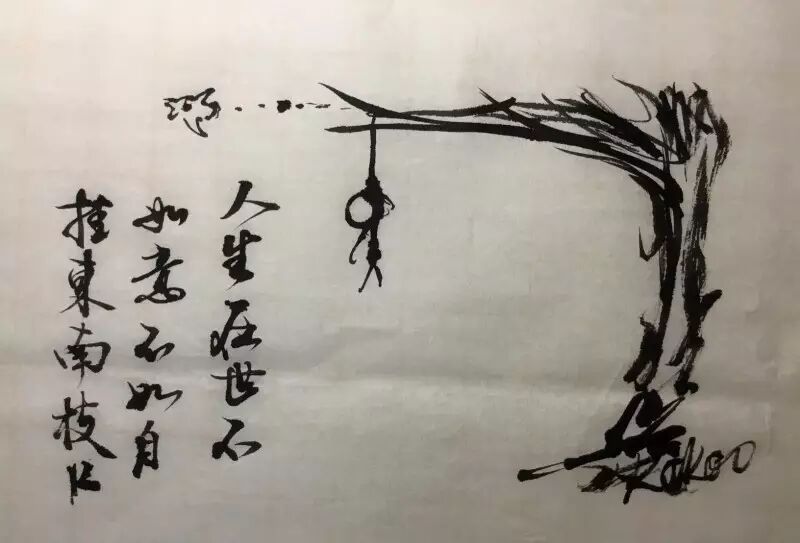 人生在世不
如意不如自
挂東南枝